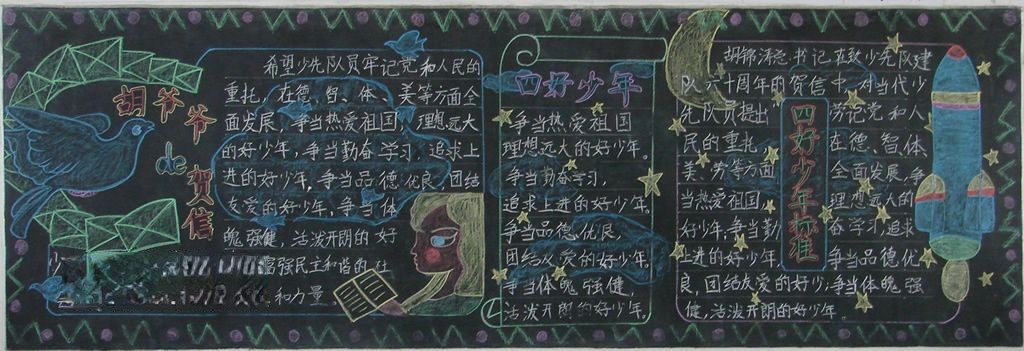 胡爷爷de贺信
希望少先队员牢记党和人民的
重托，在德、智、体、美等方面全
面发展，争当热爱祖国，理想远大
的好少年，争当勤奋学习，追求上
进的好少年，争当品德优良，团结
友爱的好少年，争当体
魄强健，活泼开朗的好
富强民主和谐的社
和力量
四好少年
争当热爱祖国
理想远大的好少年。
争当勤奋学习，
追求上进的好少年。
争当品德优良，
团结友爱的好少年。
争当体魄强健，
活泼开朗的好少年
四好少年标准
胡锦涛总书记在致少先队建
队六十周年的贺信中，对当代少
先队员提出 劳记党和人
民的重托， 在德、智、体、
美、劳等方面 全面发展，争
当热爱祖国， 理想远大的
好少年，争当勤 奋学习，追求
上进的好少年， 争当品德优
良，团结友爱的好少年，争当体魄强
健，活泼开朗的好少年。